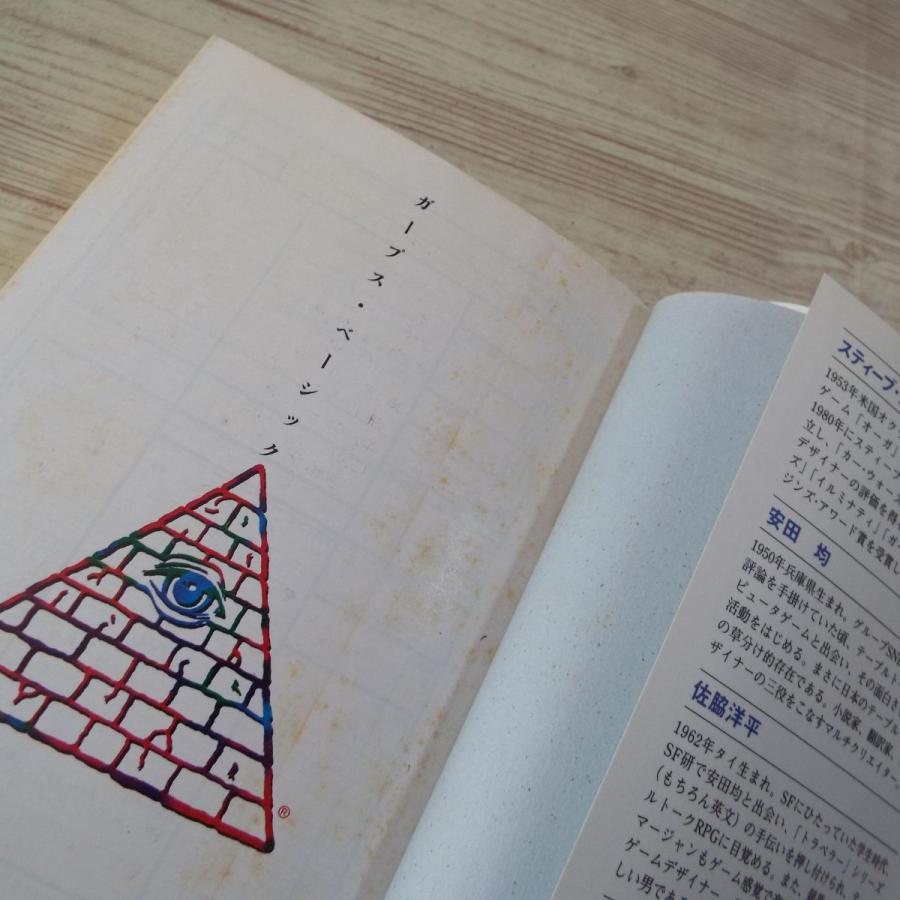 ガープス・ベーシック
®
スティーブ・
1953年米国オク
ゲーム「オーガ」
1980年にスティーブ
立し、「カー・ウォーズ
デザイナーの評価を得
ズ」「イルミナティ」「ガー
ジンズ・アワード賞を受賞し
安田 均
1950年兵庫県生まれ。グループSNE
評論を手掛けていた頃、テーブルト
ピュータゲームと出会い、その面白さ
活動をはじめる。まさに日本のテーブル
の草分け的存在である。小説家、翻訳家、
ザイナーの三役をこなすマルチクリエイター。
佐脇洋平
1962年タイ生まれ。SFにひたっていた学生時代、
SF研で安田均と出会い、「トラベラー」シリーズ
（もちろん英文）の手伝いを押し付けられ、
ルトークRPGに目覚める。また、
マージャンもゲーム感覚で
ゲームデザイナー
しい男であ